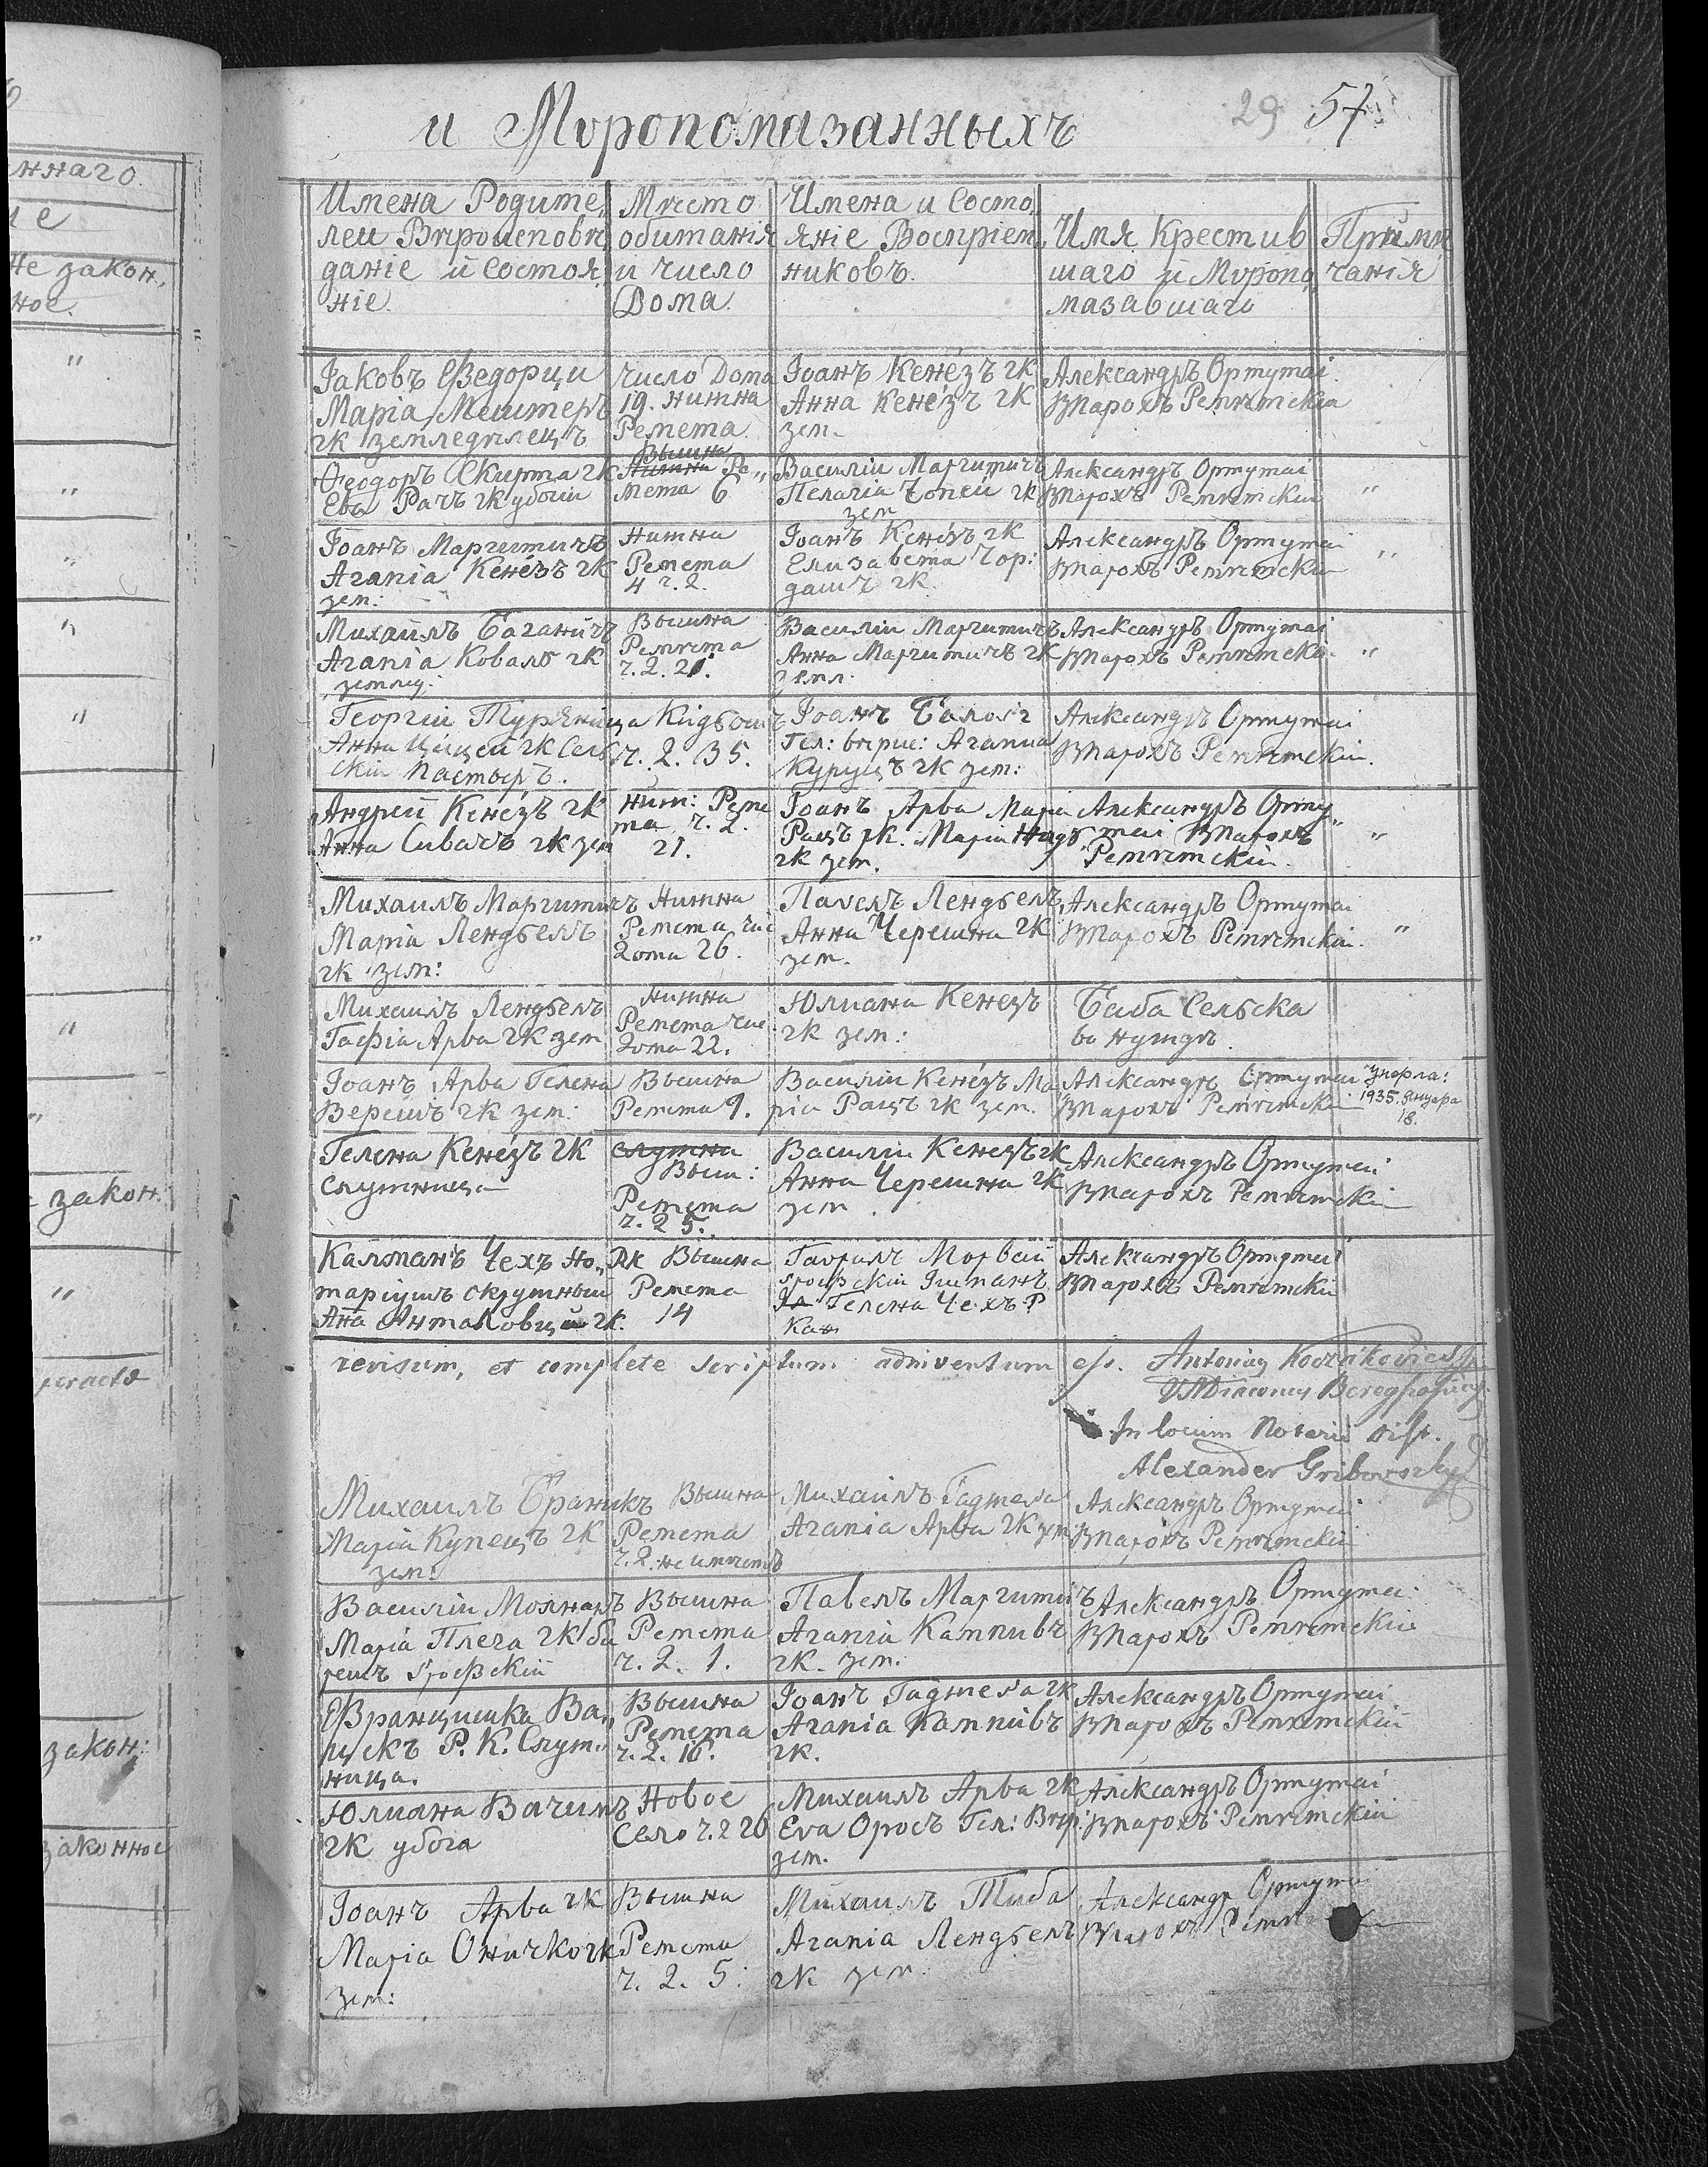 и Мѵропомазанныхъ
29 57
Имена Родите,
лей Вѣроисповѣ
даніе и Состоя,
ніе.
Мѣсто
обитанія
и число
Дома.
Имена и Состо,
яніе Воспріем,
никовъ.
Имя Крестив
шаго и Мѵропо,
мазавшаго
Примѣ
чанія
Іаковъ Федорци
Марія Мештеръ
гк земледѣлецъ
Число Дома
19. нижна
Ремета.
Іоанъ Кене́зъ гк
Анна Кене́зъ гк
зем.
Александръ Ортутаі
Парохъ Реметскій
Феодоръ Скирта гк
Ева Рачъ гк убогій
Вышна
Нижна Ре„
мета 6
Василій Маргитичъ
Пелагія Чопей гк
зем
Александръ Ортутаі
Парохъ Реметскій
"
Іоанъ Маргитичъ
Агапія Кене́зъ гк
зем:
Нижна
Ремета
ч. 2.
Іоанъ Кене́зъ гк
Елизавета Чор:
дашъ гк.
Александръ Ортутаі
Парохъ Реметскій
"
Михаилъ Баганичъ
Агапія Коваль гк
землед:
Вышна
Ремѣта
ч. д. 21.
Василій Маргитичъ
Анна Маргитичъ гк
земл.
Александръ Ортутаі
Парохъ Реметскі.
"
Георгій Туряница
Анна Цицей гк Сель
скій Пастырь.
Кидьошъ
ч. д. 35.
Іоанъ Балогъ
Гел: вѣрис: Агапиа
Куруцъ гк зем:
Александръ Ортутаі
Парохъ Реметскій.
Андрей Кене́зъ гк
Анна Сивачъ гк зем
Ниж: Реме
та ч. д.
21.
Іоанъ Арва Марія
Рацъ рк. Марія Надь
гк зем.
Александръ Орту„
таі Парохъ
Реметскій.
"
Михаилъ Маргитичъ
Марія Лендьелъ
гк зем:
Нижна
Ремета чис
дома 26.
Павелъ Лендьелъ,
Анна Черешна гк
зем.
Александръ Ортутаі
Парохъ Реметскій.
"
Михаилъ Лендьелъ
Гафія Арва гк зем
Нижна
Ремета чис
дома 22.
Юлиана Кенезъ
гк зем:
Баба Сельска
во нуждѣ.
Іоанъ Арва Гелена
Верешъ гк зем:
Вышна
Ремета 9.
Василій Кене́зъ Ма
рія Рацъ гк зем.
Александръ Ортутаі
Парохъ Реметскій
умерла:
1935. Януара
18.
Гелена Кене́зъ гк
Служница
служна
Выш:
Ремета
ч. д 5.
Василій Кенезъ гк
Анна Черешна гк
зем.
Александръ Ортутаі
Парохъ Реметскій
Калманъ Чехъ Но„
таріушъ окружный
Анна Анталовци гк.
Рк Вышна
Ремета
14
Гавриилъ Морвай
Грофскій Ишпанъ
Гелена Чехъ Р
Као
Александръ Ортутаі
Парохъ Реметскій
revisum, et complete scriptum adinventum est. Antonius Koczákovics
VADiaconus Bereghasiensis.
In locum Notarii Dist.
Alexander Gribovszky
Михаилъ Бранікъ
Марія Купецъ гк
зем:
Вышна
Ремета
ч. д. не имѣетъ
Михаилъ Гадмела
Агапія Арва гк зем
Александръ Ортутаі
Парохъ Реметскій
Василій Молнаръ
Марія Плега гк би
решъ Грофскій
Вышна
Ремета
ч. д. 1.
Павелъ Маргитичъ
Агапія Кампивъ
гк. зем.
Александръ Ортутаі
Парохъ Реметскій
Францишка Ва„
цекъ Р. К. Служ„
ница.
Вышна
Ремета
ч. д. 16.
Іоанъ Гадмела гк
Агапія Кампивъ
гк.
Александръ Ортутаі
Парохъ Реметскій
Юлиана Вачилъ
гк убога
Новое
Село ч. д 26
Михаилъ Арва гк
Ева Оросъ Гел: Вѣр:
зем.
Александръ Ортутаі
Парохъ Реметскій
Іоанъ Арва гк
Марія Оничко гк
зем:
Вышна
Ремета
ч. д. 5.
Михаилъ Тиба
Агапія Лендьелъ
гк зем.
Александръ Ортутаі
Парохъ
ннаго.
не закон,
ное.
закон.
peracta
закон:
законное